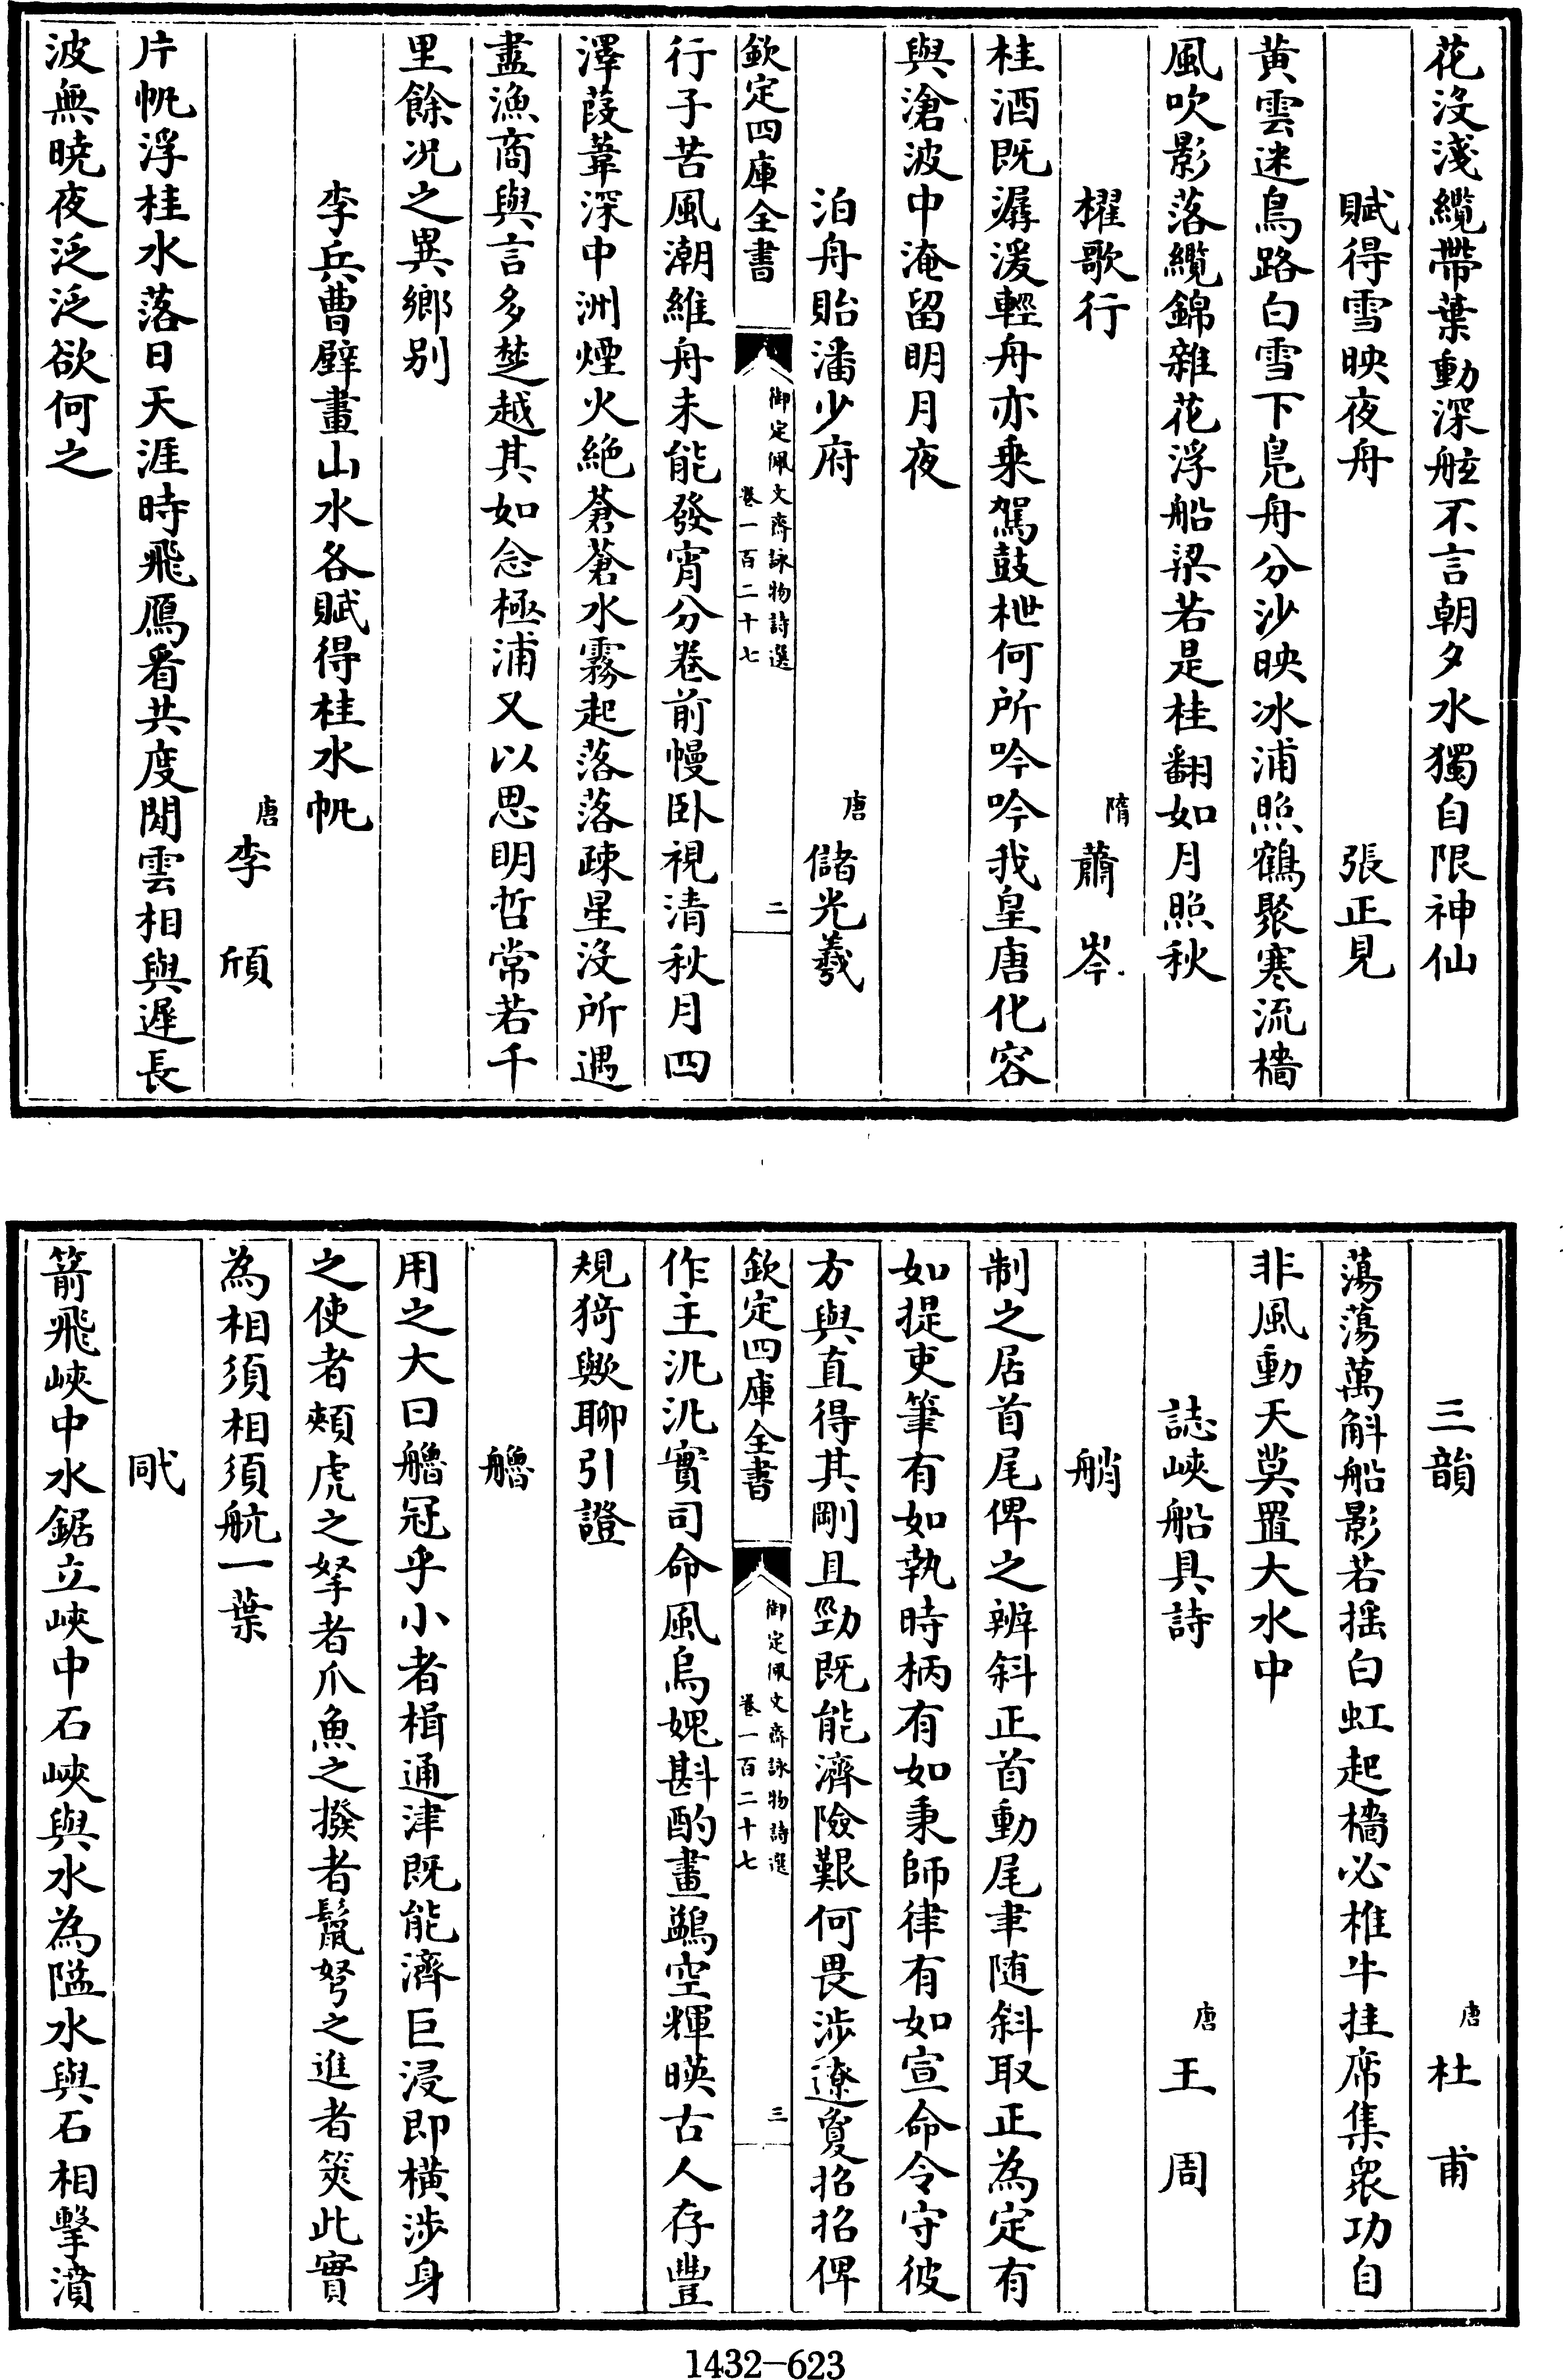 花没淺纜帶葉動深舷不言朝夕水獨自限神仙
賦得雪映夜舟 張正見
黄雲迷鳥路白雪下凫舟分沙映冰浦照鶴聚寒流檣
風吹影落纜錦雜花浮船梁若是桂翻如月照秋
櫂歌行 隋 蕭岑
桂酒既潺湲輕舟亦乘駕鼓枻何所吟吟我皇唐化容
與滄波中淹留明月夜
泊舟貽潘少府 唐 儲光羲
欽定四庫全書 御定佩文齋詠物詩選 卷一百二十七 二
行子苦風潮維舟未能發宵分卷前幔卧視清秋月四
澤葭葦深中洲煙火絶蒼蒼水霧起落落疎星没所遇
盡漁商與言多楚越其如念極浦又以思明哲常若千
里餘况之異鄉别
李兵曹壁畫山水各賦得桂水帆
唐 李頎
片帆浮桂水落日天涯時飛鴈看共度閒雲相與遲長
波無曉夜泛泛欲何之
三韻 唐 杜甫
蕩蕩萬斛船影若揺白虹起檣必椎牛挂席集衆功自
非風動天莫置大水中
誌峽船具詩 唐 王周
艄
制之居首尾俾之辨斜正首動尾聿随斜取正為定有
如提吏筆有如執時柄有如秉師律有如宣命令守彼
方與直得其剛且勁既能濟險艱何畏涉遼敻招招俾
欽定四庫全書 御定佩文齋詠物詩選 卷一百二十七 三
作主汎汎實司命風烏媿斟酌畫鷁空輝暎古人存豐
規猗歟聊引證
艪
用之大曰艪冠乎小者楫通津既能濟巨浸即横涉身
之使者頰虎之拏者爪魚之撥者鬛弩之進者筴此實
為相須相須航一葉
戙
箭飛峽中水鋸立峽中石峽與水為隘水與石相擊濆
1432-623